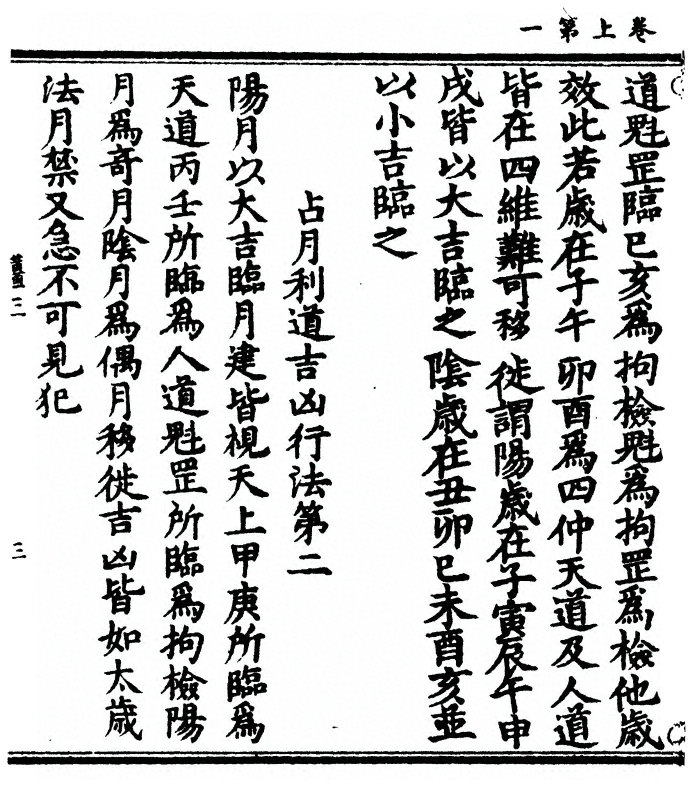 卷上第一
道魁罡臨巳亥爲拘檢魁爲拘罡爲檢他歲
效此若歲在子午卯酉爲四仲天道及人道
皆在四維難可移徙謂陽歲在子寅辰午申
戌皆以大吉臨之陰歲在丑卯巳未酉亥並
以小吉臨之
占月利道吉凶行法第二
陽月以大吉臨月建皆視天上甲庚所臨爲
天道丙壬所臨爲人道魁罡所臨爲拘檢陽
月爲奇月陰月爲偶月移徙吉凶皆如太歲
法月禁又急不可見犯
三